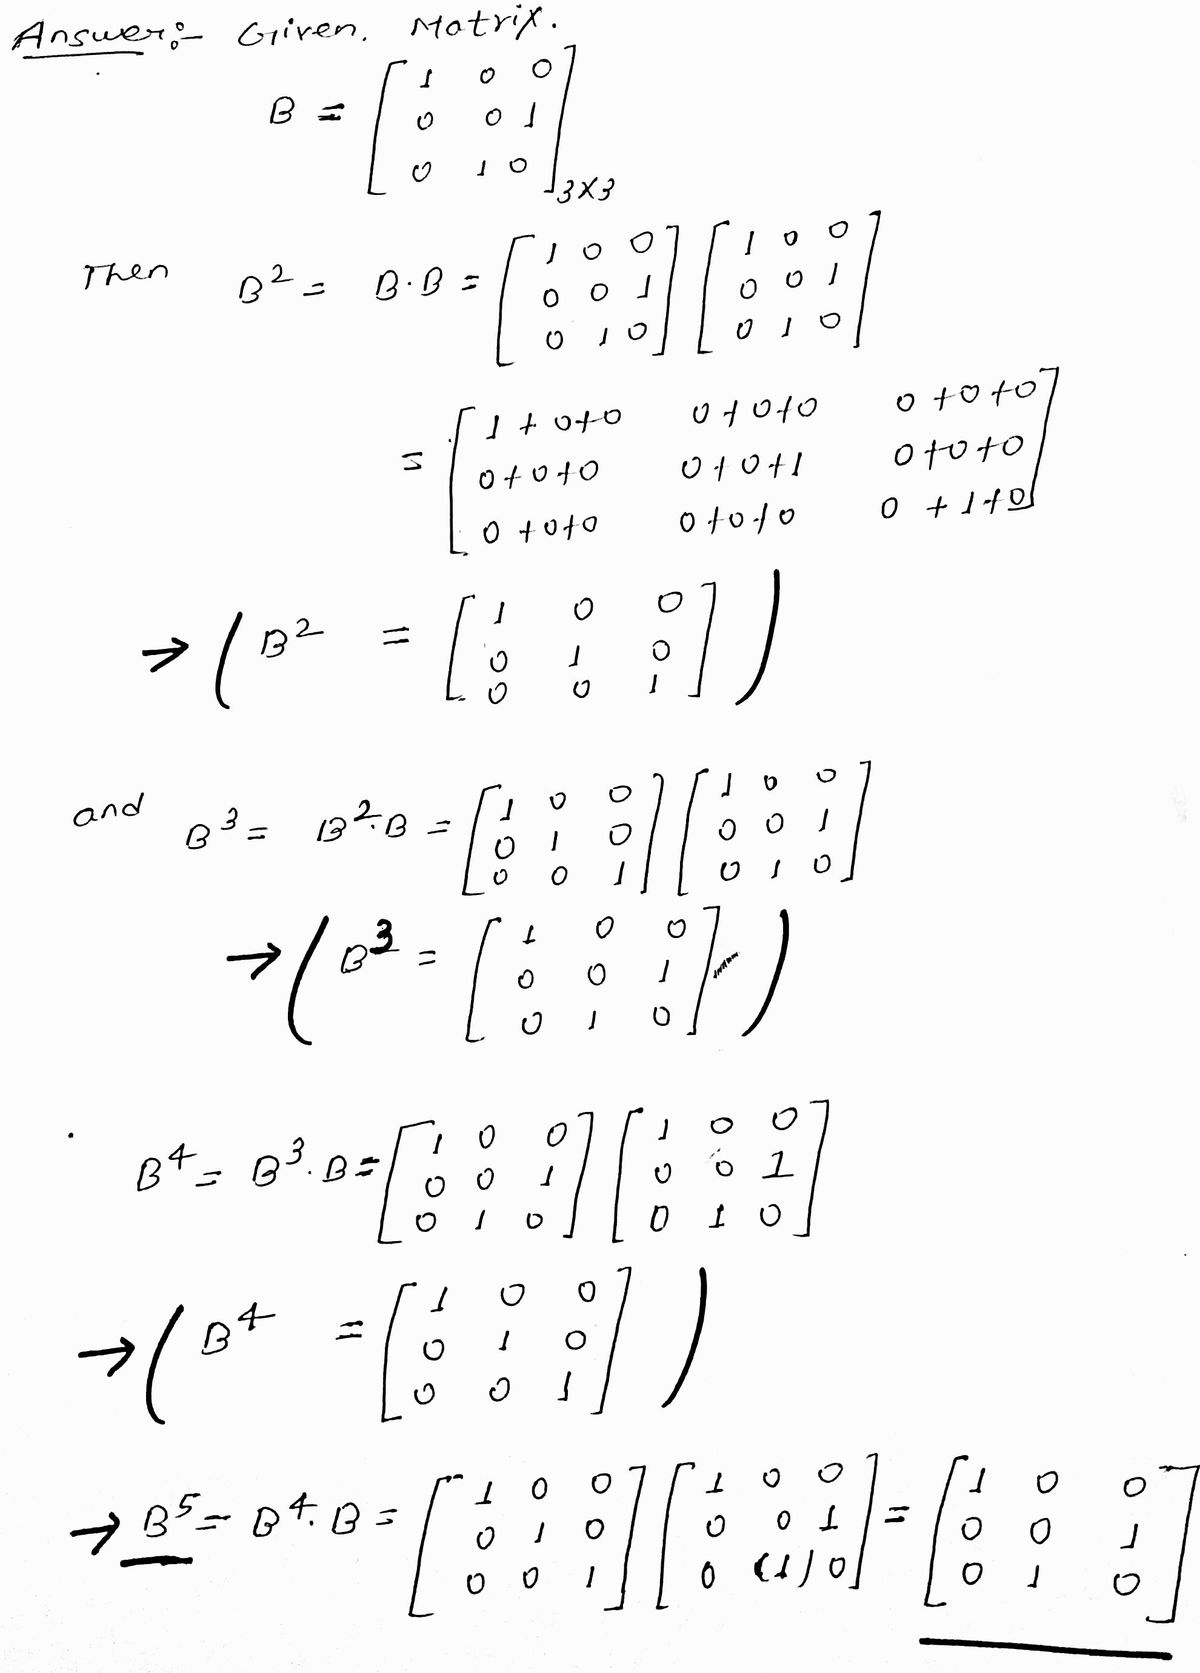 Answer:- Given. Matrix.
B = [ 1 0 0
0 0 1
0 1 0 ]3×3
Then B² = B·B = [ 1 0 0 ] [ 1 0 0
0 0 1 0 0 1
0 1 0 ] 0 1 0 ]
= [ 1+0+0 0+0+0 0+0+0
0+0+0 0+0+1 0+0+0
0+0+0 0+0+0 0+1+0 ]
→ ( B² = [ 1 0 0 ] )
0 1 0
0 0 1
and B³ = B²·B = [ 1 0 0 ] [ 1 0 0 ]
0 1 0 0 0 1
0 0 1 0 1 0
→ ( B³ = [ 1 0 0 ] )
0 0 1
0 1 0
B⁴ = B³·B = [ 1 0 0 ] [ 1 0 0 ]
0 0 1 0 0 1
0 1 0 0 1 0
→ ( B⁴ = [ 1 0 0 ] )
0 1 0
0 0 1
→ B⁵ = B⁴·B = [ 1 0 0 ] [ 1 0 0 ] = [ 1 0 0 ]
0 1 0 0 0 1 0 0 1
0 0 1 0 (1) 0 0 1 0